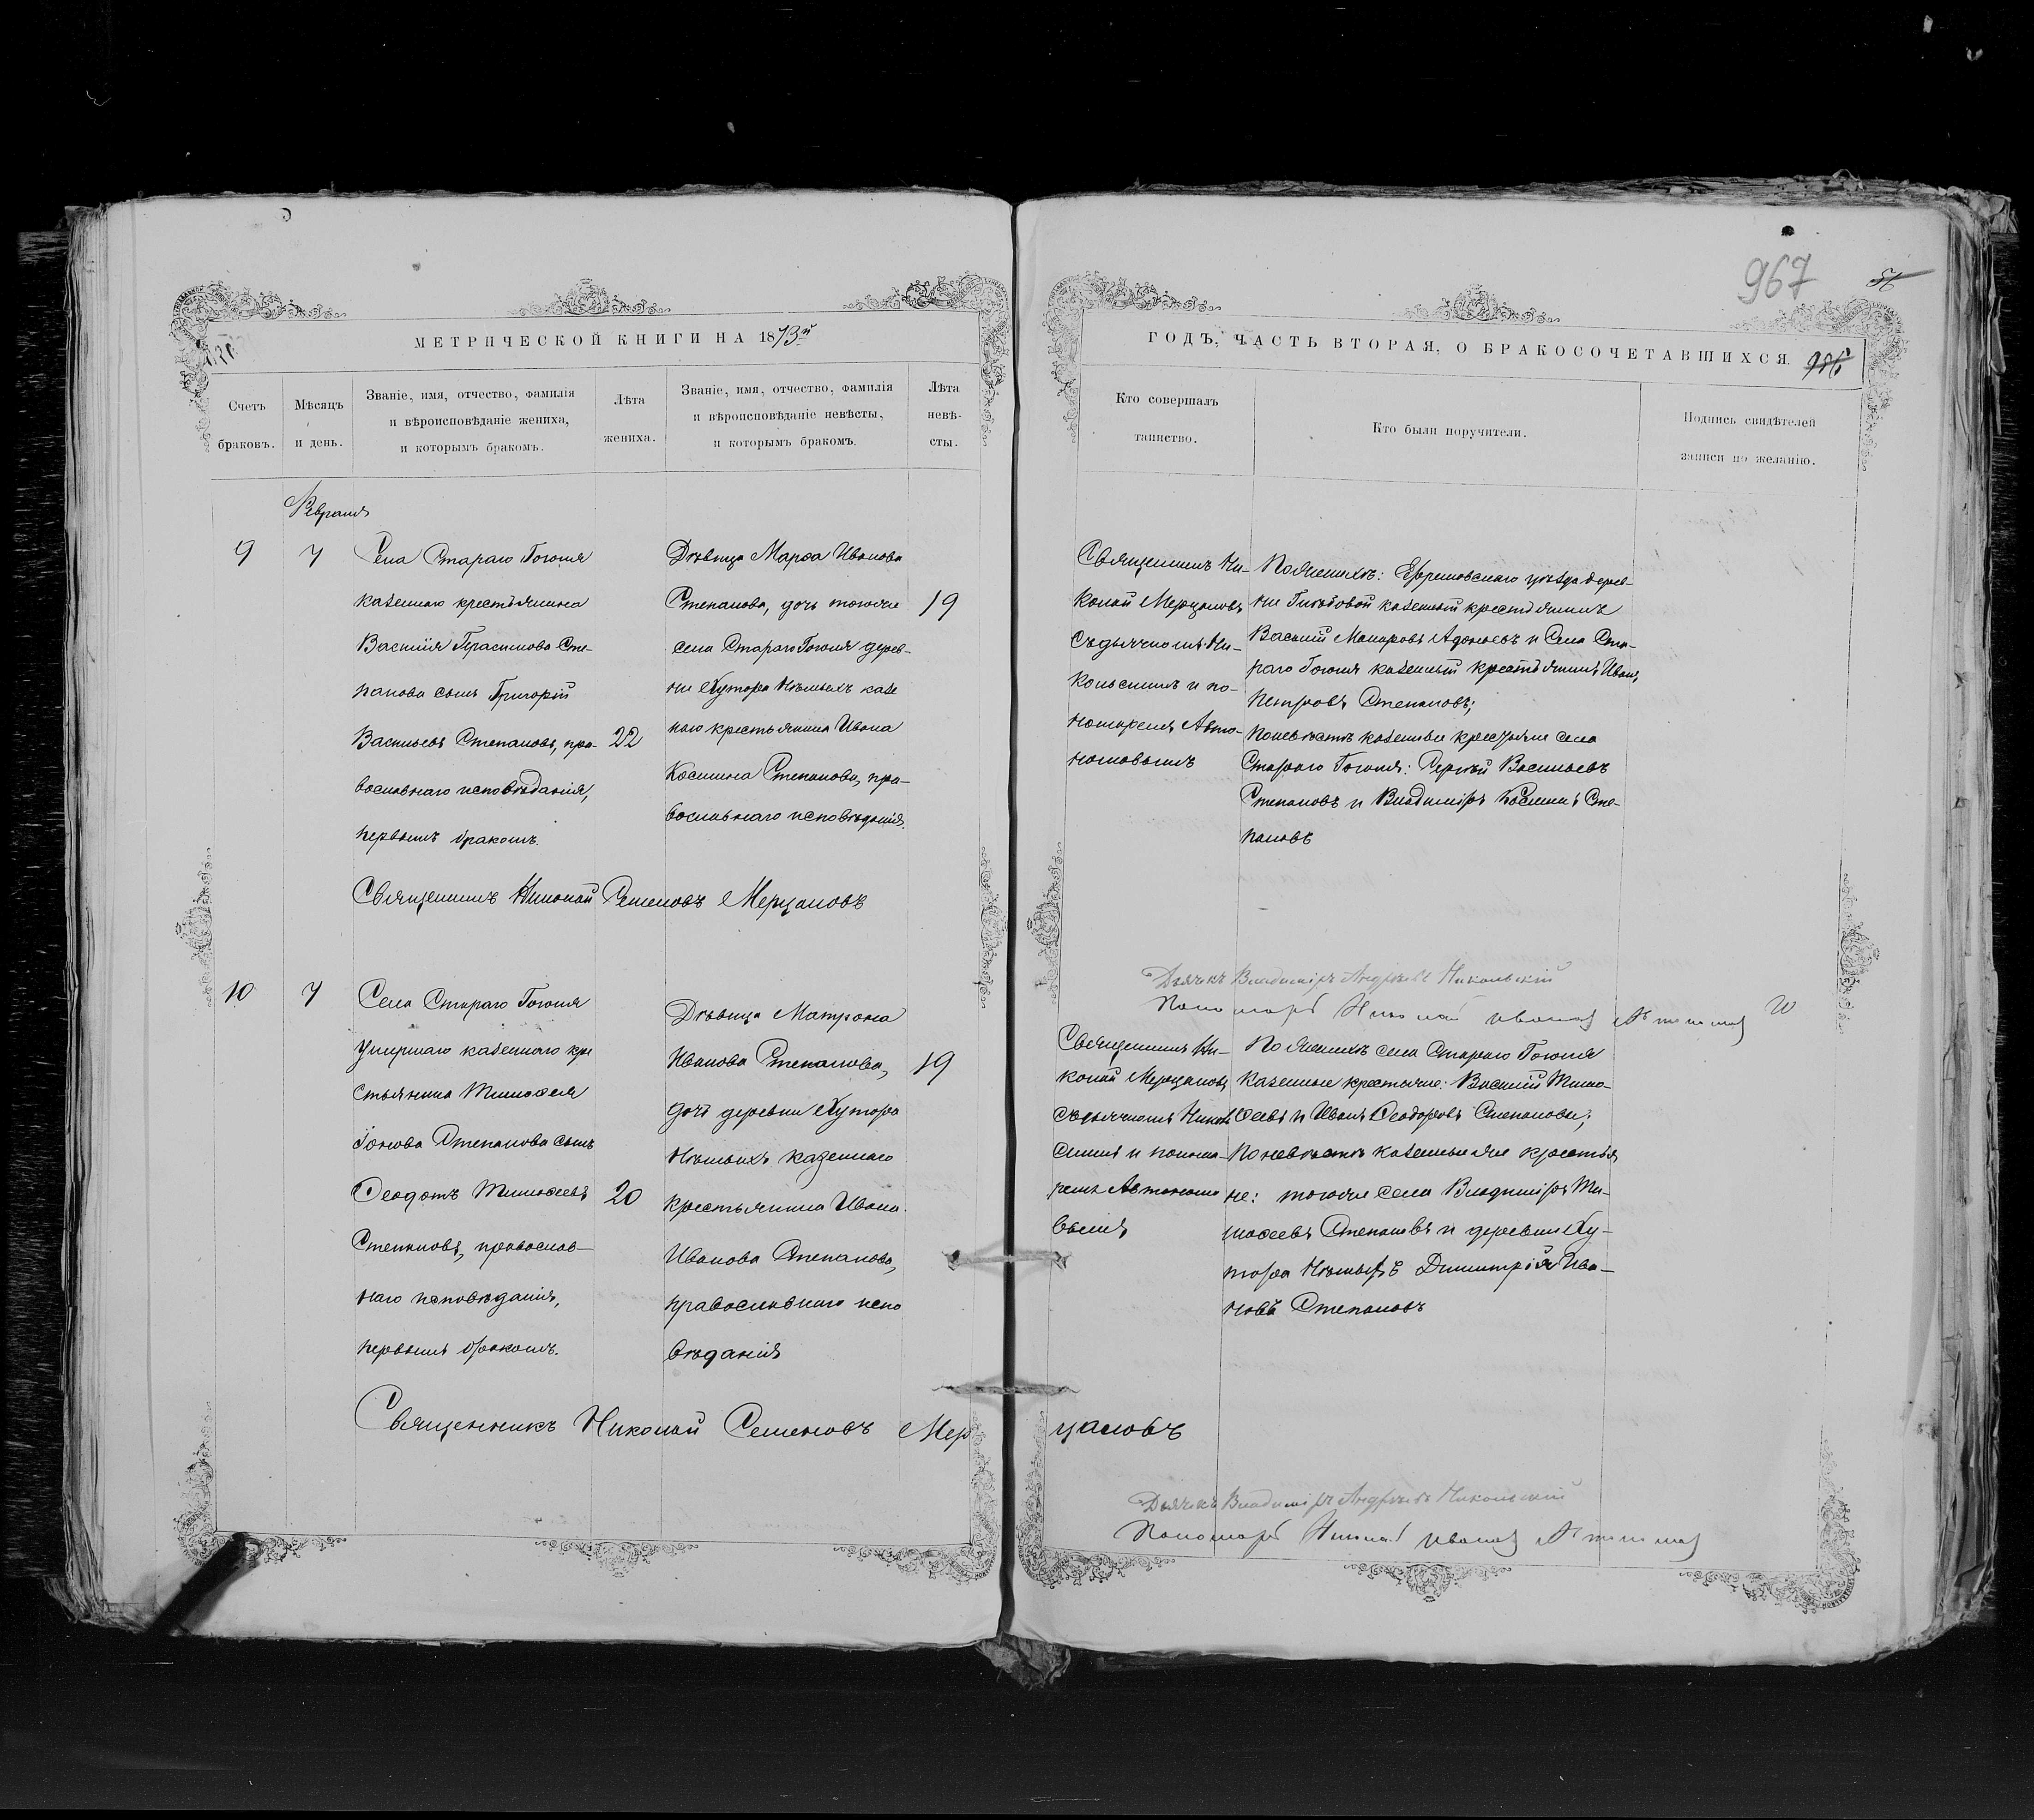 967
56
МЕТРИЧЕСКОЙ КНИГИ НА 1873й
ГОДЪ, ЧАСТЬ ВТОРАЯ, О БРАКОСОЧЕТАВШИХСЯ.
Счетъ
браковъ.
Мѣсяцъ
и день.
Званіе, имя, отчество, фамилія
и вѣроисповѣданіе жениха,
и которымъ бракомъ.
Лѣта
жениха.
Званіе, имя, отчество, фамилія
и вѣроисповѣданіе невѣсты,
и которымъ бракомъ.
Лѣта
невѣ-
сты.
Кто совершалъ
таинство.
Кто были поручители.
Подпись свидѣтелей
записи по желанію.
Февраля
9
7
Села Стараго Гоголя
казеннаго крестьянина
Василія Герасимова Сте-
панова сынъ Григорій
Васильевъ Степановъ, пра-
вославнаго исповѣданія,
первымъ бракомъ.
22
Дѣвица Марѳа Иванова
Степанова, дочь тогоже
села Стараго Гоголя дерев-
ни Хутора Нѣмыхъ казе
наго крестьянина Ивана
Косьмина Степанова, пра-
вославнаго исповѣданія.
19
Священникъ Ни-
колай Мерцаловъ
съ дьячкомъ Ни-
кольскимъ и по-
номаремъ Авто-
номовымъ
По женихѣ: Ефремовскаго уѣзда дерев-
ни Глѣбовой казенный крестьянинъ
Василій Макаровъ Адоньевъ и Села Ста-
раго Гоголя казенный крестьянинъ Иванъ
Петровъ Степановъ;
По невѣстѣ казенные крестьяне села
Стараго Гоголя: Сергѣй Васильевъ
Степановъ и Владиміръ Косминъ Сте-
пановъ
Священникъ Николай Семеновъ Мерцаловъ
Дьячекъ Владиміръ Андреевъ Никольскій
Пономарь Николай Ивановъ Автономовъ
10
7
Села Стараго Гоголя
умершаго казеннаго кре
стьянина Тимоѳея
Іонова Степанова сынъ
Ѳеодотъ Тимоѳеевъ
Степановъ, православ-
наго исповѣданія,
первымъ бракомъ.
20
Дѣвица Матрона
Иванова Степанова,
дочь деревни Хутора
Нѣмыхъ казеннаго
крестьянина Ивана
Иванова Степанова,
православнаго испо
вѣданія
19
Священникъ Ни-
колай Мерцаловъ
съ дьячкомъ Николь
скимъ и понома-
ремъ Автономо
вымъ
По женихѣ села Стараго Гоголя
казенные крестьяне: Василій Тимо-
ѳеевъ и Иванъ Ѳеодоровъ Степановы;
По невѣстѣ казенные же крестья
не: тогоже села Владиміръ Ти-
моѳеевъ Степановъ и деревни Ху-
тора Нѣмыхъ Димитрій Ива-
новъ Степановъ
Священникъ Николай Семеновъ Мерцаловъ
Дьячекъ Владиміръ Андреевъ Никольскій
Пономарь Николай Ивановъ Автономовъ